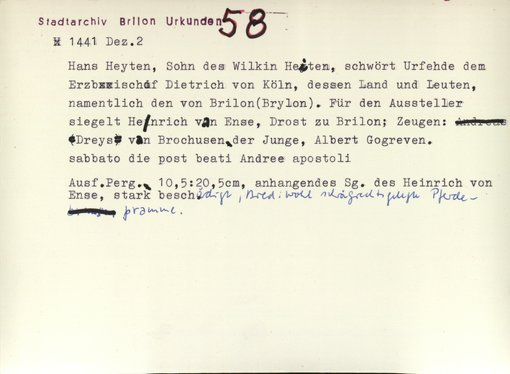 Stadtarchiv Brilon Urkunden 58
1441 Dez.2
Hans Heyten, Sohn des Wilkin Heiten, schwört Urfehde dem
Erzbischof Dietrich von Köln, dessen Land und Leuten,
namentlich den von Brilon(Brylon). Für den Aussteller
siegelt Heinrich van Ense, Drost zu Brilon; Zeugen: Andreas
(Dreys) van Brochusen der Junge, Albert Gogreven.
sabbato die post beati Andree apostoli
Ausf.Perg., 10,5:20,5cm, anhangendes Sg. des Heinrich von
Ense, stark beschädigt, wohl schrägrechtsgelegte Pferde-
pramme.